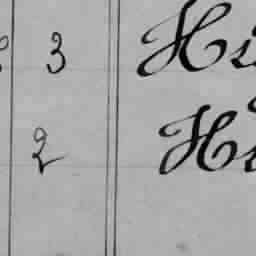 3 Hi
2 Hi